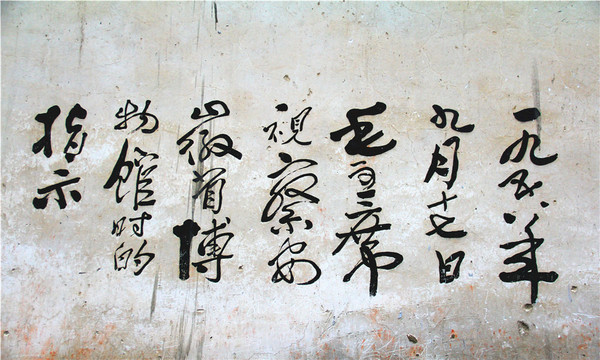 一九五八年
九月十七日
毛主席
視察安
徽省博
物館时的
指示